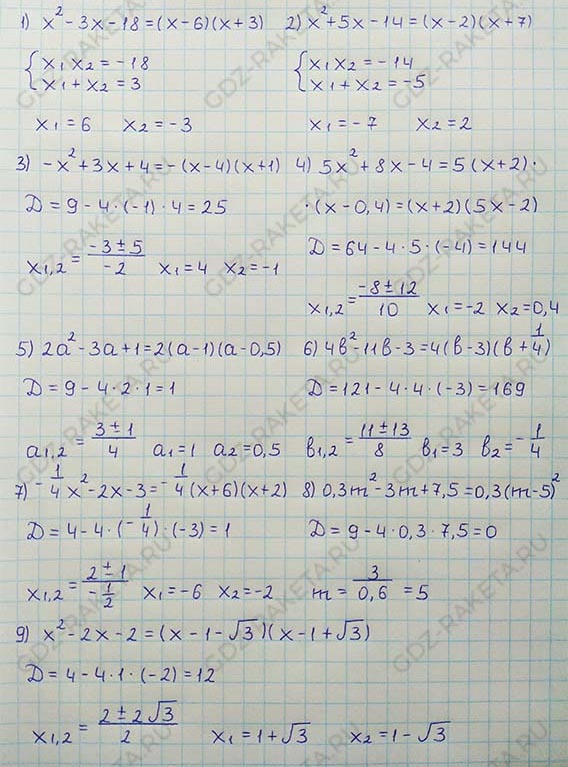 1) x² - 3x - 18 = (x - 6)(x + 3)
2) x² + 5x - 14 = (x - 2)(x + 7)
{ x₁x₂ = -18
x₁ + x₂ = 3
{ x₁x₂ = -14
x₁ + x₂ = -5
x₁ = 6 x₂ = -3
x₁ = -7 x₂ = 2
3) -x² + 3x + 4 = -(x - 4)(x + 1)
D = 9 - 4 · (-1) · 4 = 25
x₁,₂ = (-3 ± 5)/(-2) x₁ = 4 x₂ = -1
4) 5x² + 8x - 4 = 5(x + 2) ·
· (x - 0,4) = (x + 2)(5x - 2)
D = 64 - 4 · 5 · (-4) = 144
x₁,₂ = (-8 ± 12)/10 x₁ = -2 x₂ = 0,4
5) 2a² - 3a + 1 = 2(a - 1)(a - 0,5)
D = 9 - 4 · 2 · 1 = 1
a₁,₂ = (3 ± 1)/4 a₁ = 1 a₂ = 0,5
6) 4b² - 11b - 3 = 4(b - 3)(b + 1/4)
D = 121 - 4 · 4 · (-3) = 169
b₁,₂ = (11 ± 13)/8 b₁ = 3 b₂ = -1/4
7) -1/4 x² - 2x - 3 = -1/4 (x + 6)(x + 2)
D = 4 - 4 · (-1/4) · (-3) = 1
x₁,₂ = (2 ± 1)/(-1/2) x₁ = -6 x₂ = -2
8) 0,3m² - 3m + 7,5 = 0,3(m - 5)²
D = 9 - 4 · 0,3 · 7,5 = 0
m = 3/0,6 = 5
9) x² - 2x - 2 = (x - 1 - √3)(x - 1 + √3)
D = 4 - 4 · 1 · (-2) = 12
x₁,₂ = (2 ± 2√3)/2 x₁ = 1 + √3 x₂ = 1 - √3
GDZ-RAKETA.RU